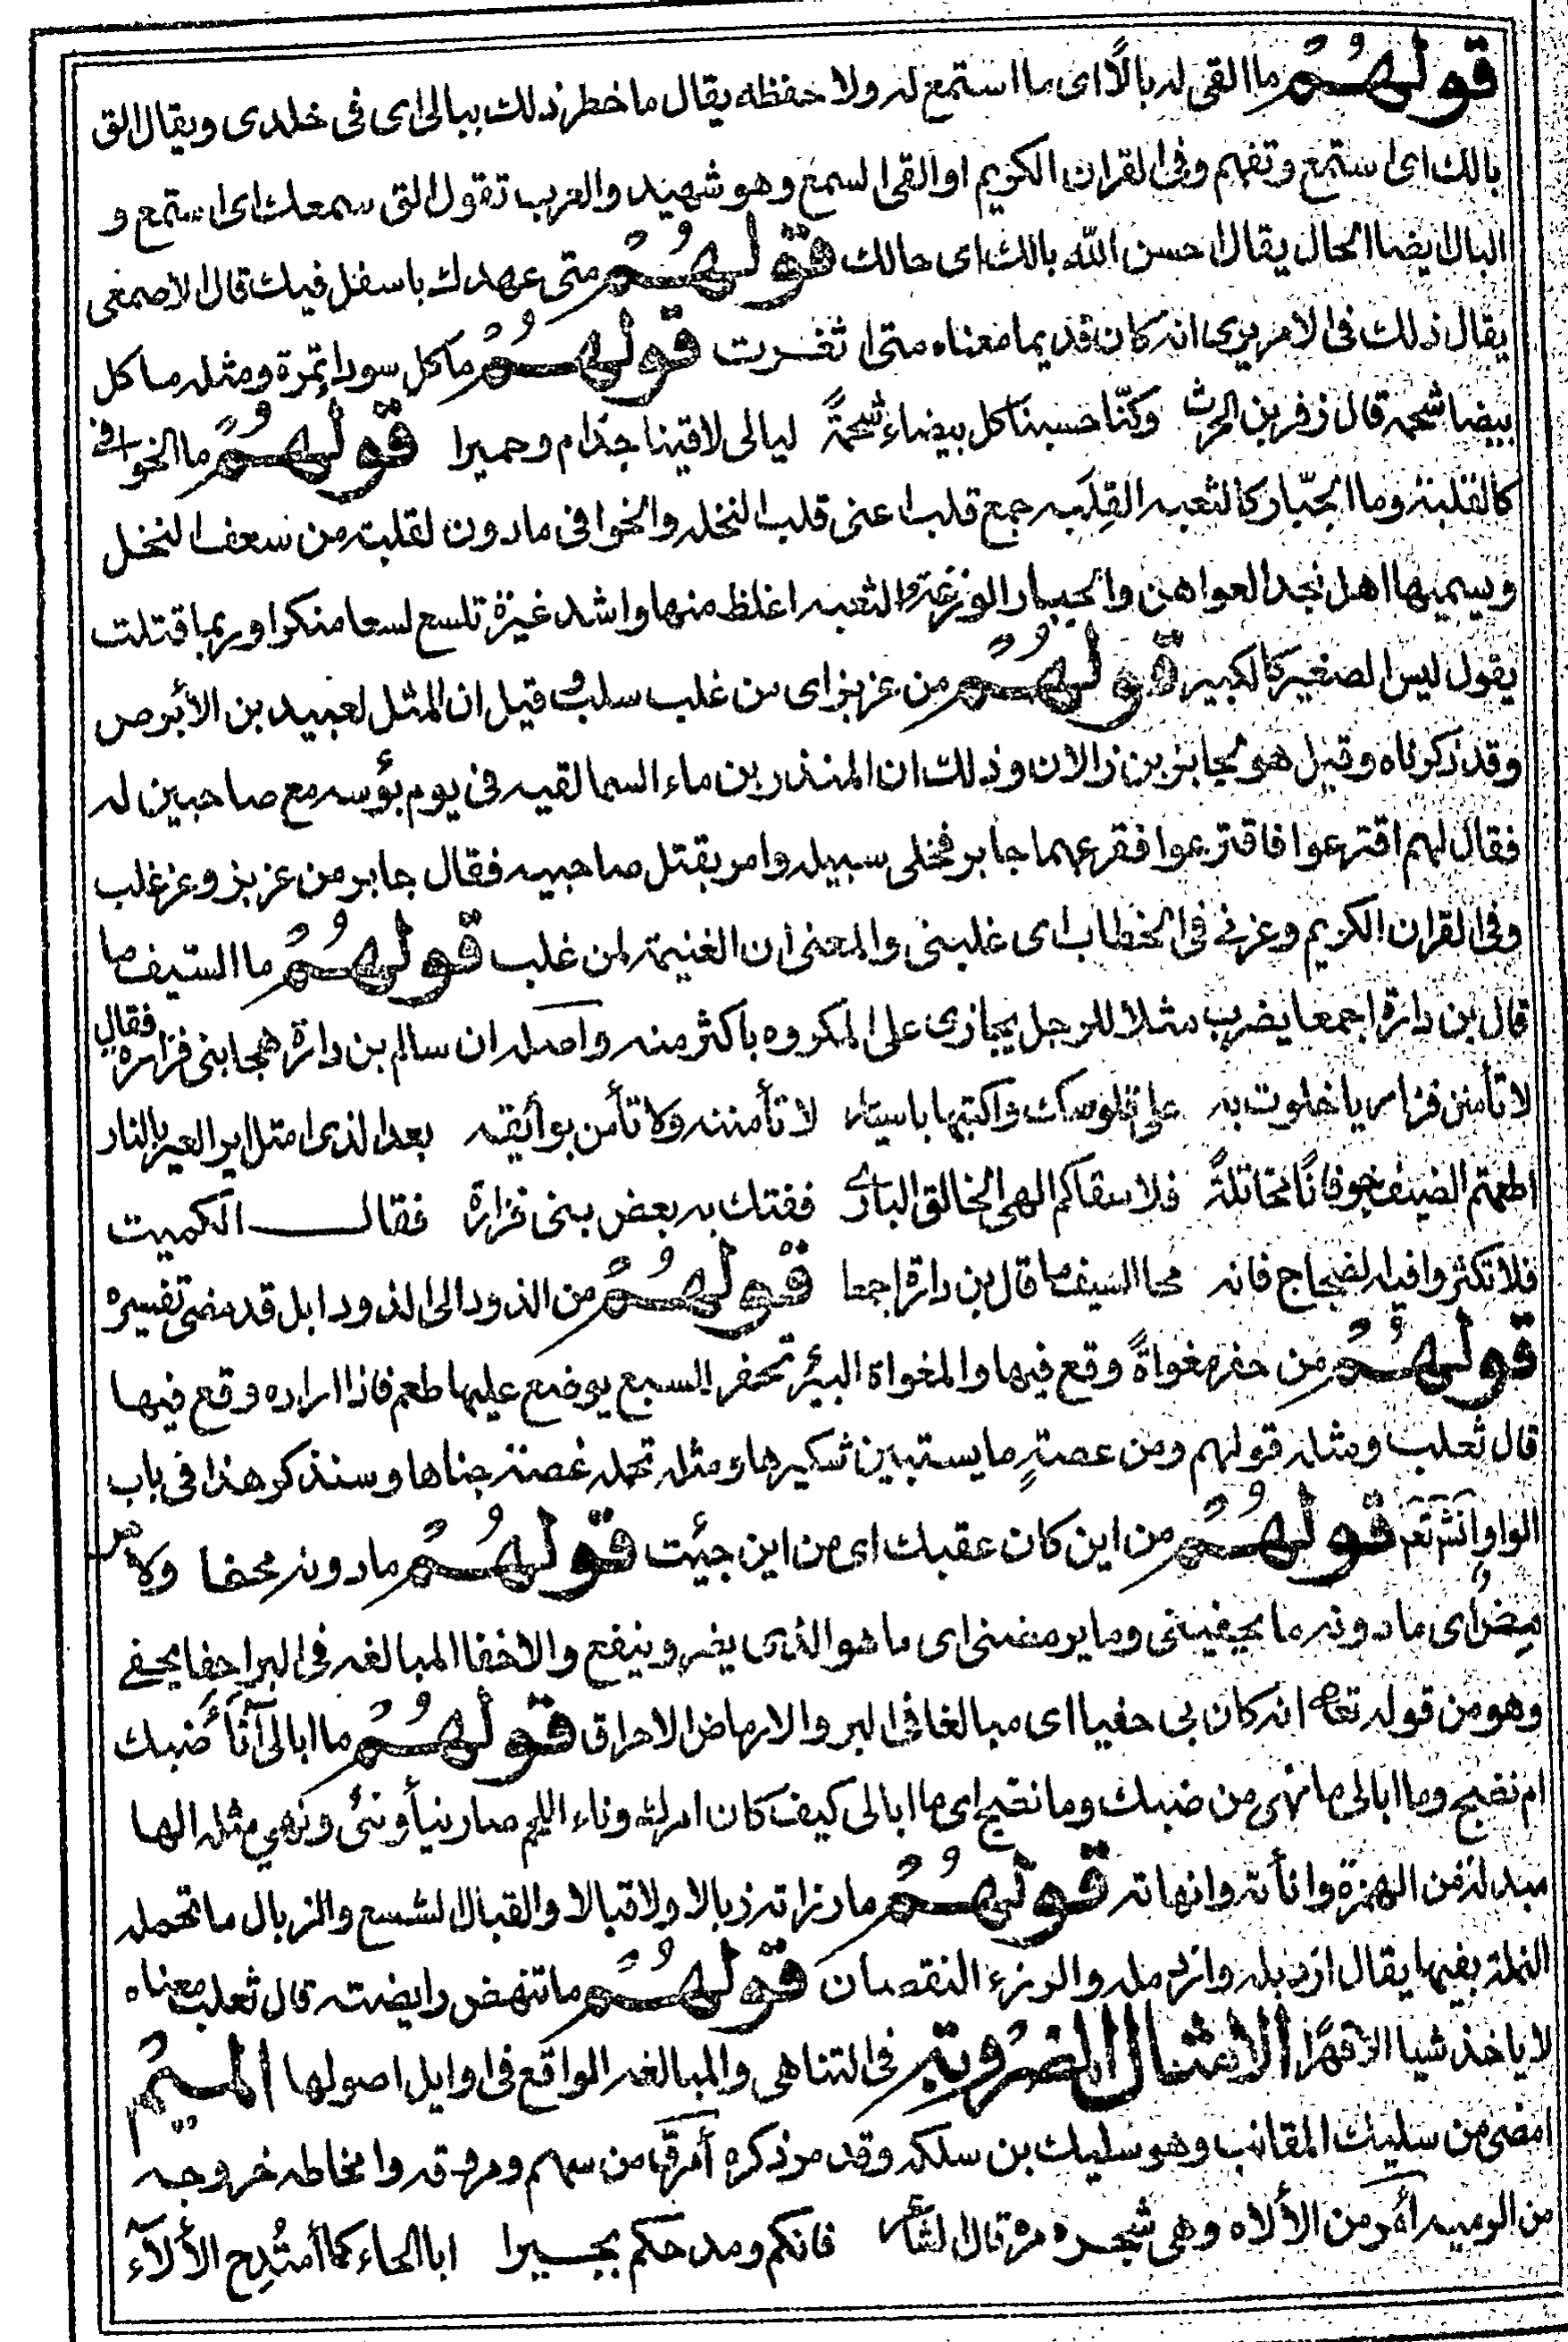 قولهم ما القى له بالًا اى ما استمع له ولا حفظه يقال ما خطر ذلك ببالى اى فى خلدى ويقال الق
بالك اى استمع وتفهم وفى القران الكريم او القى السمع وهو شهيد والعرب تقول القى سمعك اى استمع و
البال ايضا الحال يقال احسن الله بالك اى حالك قولهم متى عهدك باسفل فيك قال الاصمعى
يقال ذلك فى الامر يرى انه كان قديما معناه متى اثغرت قولهم ما كل سودا تمرة ومثله ما كل
بيضا شحمه قال زفر بن الحرث وكنّا حسبنا كل بيضاء شحمةً ليالى لاقينا جذام وحميرا قولهم ما الخوافى
كالقلبة وما الخبّار كالثعبه القِلَبه جمع قلب اعنى قلب النخله والخوافى ما دون لقلبة من سعف النخل
ويسميها اهل نجد العواهن والخبار الوزغة والثعبه اغلظ منها واشد غبرة تلسع لسعا منكرا وربما قتلت
يقول ليس الصغير كالكبير قولهم من عزيز اى من غلب سلب وقيل ان المثل لعبيد بن الأبرص
وقد ذكرناه وقيل هو لجابر بن زالان وذلك ان المنذر بن ماء السما لقيه فى يوم بؤسه مع صاحبين له
فقال لهم اقترعوا فاقترعوا فقرعهما جابر فخلى سبيله وامر بقتل صاحبيه فقال جابر من عزيز وعز غلب
وفى القران الكريم وعزنى فى الخطاب اى غلبنى والمعنى ان الغنيمة لمن غلب قولهم ما السّيف ما
قال بن دارة اجمعا يضرب مثلا للرجل يجازى على المكروه باكثر منه واصله ان سالم بن دارة هجا بنى فزاره فقال
لا تأمنن فزاريا خلوت به على قلوصك واكتبها باسيار لا تأمننه ولا تأمن بوائقه بعد الذى امتل اير العير بالنار
اطعمتم الضيف جوفانًا مخاتلةً فلا سقاكم الهى الخالق البارى ففتك به بعض بنى فزارة فقال الكميت
فلا تكثروا فيه الضجاج فانه محا السيف ما قال بن دارة اجمعا قولهم من الذود الى الذود ابل قد مضى تفسيره
قولهم من حفر مغواةً وقع فيها والمغواة البئر تحفر للسبع يوضع عليها طعم فاذا اراده وقع فيها
قال ثعلب ومثله قولهم ومن عصةٍ ما يستبين شكيرها ومثله تحمله غصنة جناها وسنذكر هذا فى باب
الواو انشتع قولهم من اين كان عقبك اى من اين جيئت قولهم ما دونه محفا ولا مر
مضٌ اى ما دونه ما يحفيننى وما يرمضنى اى ما هو الذى يضر وينفع والاخفا المبالغه فى البر احفا يحفى
وهو من قوله تعا انه كان بى حفيا اى مبالغا فى البر والارماض الاحراق قولهم ما ابالى أنأ ضبك
ام نضج وما ابالى ما نهى من ضبك وما نضج اى ما ابالى كيف كان امرك وناء اللحم صار نيأ ونىٌ ونهى مثله الها
مبدلة من الهمزة وانأته وانهاته قولهم ما رزاته زبالا ولا قبالا والقبال الشسع والزبال ما تحمله
النملة بفيها يقال ازدبله وازدمله والرزء النقصان قولهم ما تنهض رابضته قال ثعلب معناه
لا ياخذ شيا الا قهرًا الامثال المضروبة فى التناهى والمبالغه الواقع فى اوايل اصولها الميم
امضى من سليك المقانب وهو سليك بن سلكه وقد مر ذكره أمرق من سهم ومروقه وامخاطه خروجه
من الرميه امَر من الألاه وهى شجره مره قال الشاعر فانكم ومدحكم بجيرا ابا لجاء كما امتُدِح الألآء